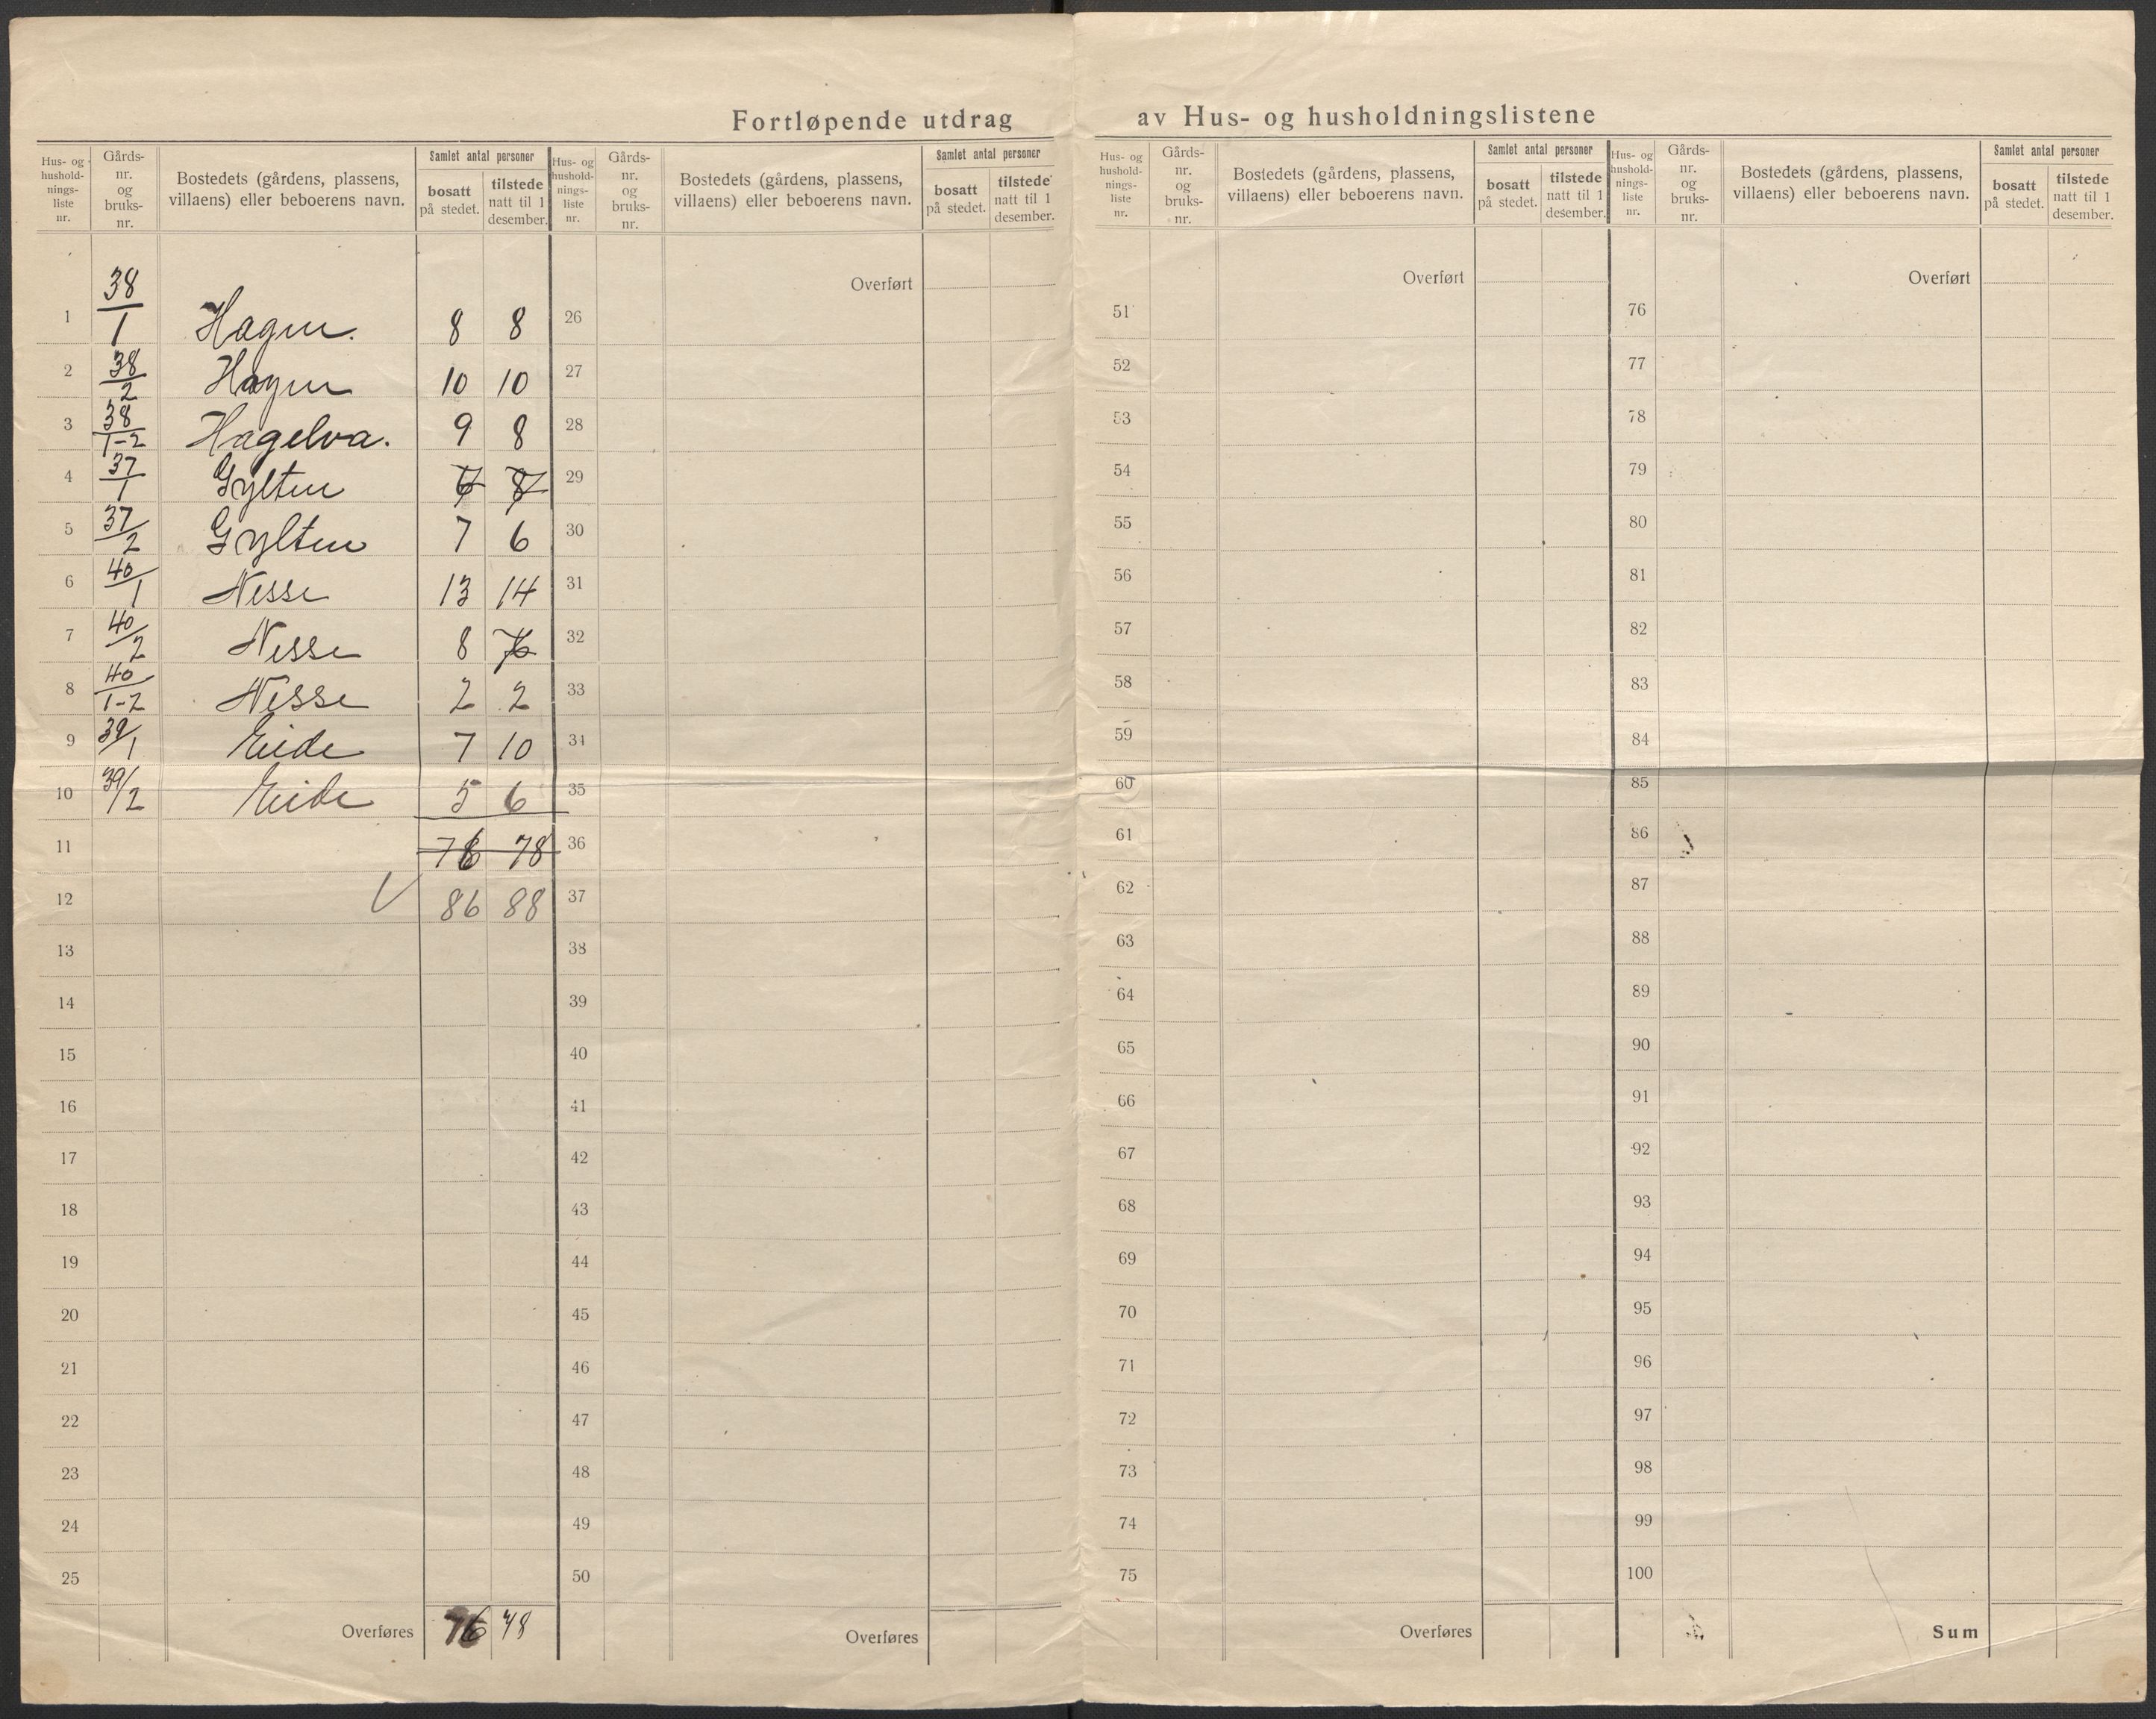 Fortløpende utdrag av Hus- og husholdningslistene
Hus- og hushold- nings- liste nr.
Gårds- nr. og bruks- nr.
Bostedets (gårdens, plassens, villaens) eller beboerens navn.
Samlet antal personer
bosatt på stedet.
tilstede natt til 1 desember.
1 38/1 Hagen. 8 8
2 38/2 Hagen 10 10
3 38/1-2 Hagelva. 9 8
4 37/1 Gylten
5 37/2 Gylten 7 6
6 40/1 Nesse 13 14
7 40/2 Nesse 8
8 40/1-2 Nesse 2 2
9 39/1 Eide 7 10
10 39/2 Eide 5 6
11 76 78
12 86 88
13
14
15
16
17
18
19
20
21
22
23
24
25
Overføres 76 78
Hus- og hushold- nings- liste nr.
Gårds- nr. og bruks- nr.
Bostedets (gårdens, plassens, villaens) eller beboerens navn.
Samlet antal personer
bosatt på stedet.
tilstede natt til 1 desember.
Overført
26
27
28
29
30
31
32
33
34
35
36
37
38
39
40
41
42
43
44
45
46
47
48
49
50
Overføres
Hus- og hushold- nings- liste nr.
Gårds- nr. og bruks- nr.
Bostedets (gårdens, plassens, villaens) eller beboerens navn.
Samlet antal personer
bosatt på stedet.
tilstede natt til 1 desember.
Overført
51
52
53
54
55
56
57
58
59
60
61
62
63
64
65
66
67
68
69
70
71
72
73
74
75
Overføres
Hus- og hushold- nings- liste nr.
Gårds- nr. og bruks- nr.
Bostedets (gårdens, plassens, villaens) eller beboerens navn.
Samlet antal personer
bosatt på stedet.
tilstede natt til 1 desember.
Overført
76
77
78
79
80
81
82
83
84
85
86
87
88
89
90
91
92
93
94
95
96
97
98
99
100
Sum